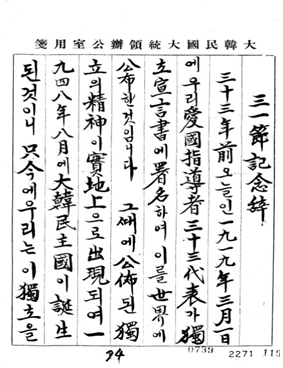 大韓民國大統領辦公室用箋
三一節記念辭
三十三年前오늘인一九一九年三月一日
에우리愛國指導者三十三代表가獨
立宣言書에署名하여이를世界에
公布한것입니다 그때에公佈된獨
立의精神이實地上으로出現되여一
九四八年八月에大韓民主國이誕生
된것이니只今에우리는이獨立을
0739
2271 119